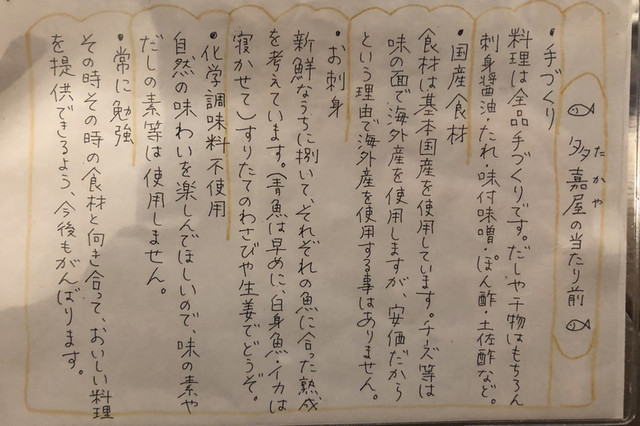 多嘉屋の当たり前
たかや
・手づくり
料理は全品手づくりです。だしや干物はもちろん
刺身醤油・たれ・味付味噌・ぽん酢・土佐酢など。
・国産食材
食材は基本国産を使用しています。チーズ等は
味の面で海外産を使用しますが、安価だから
という理由で海外産を使用する事はありません。
・お刺身
新鮮なうちに捌いて、それぞれの魚に合った熟成
を考えています。(青魚は早めに、白身魚・イカは
寝かせて)すりたてのわさびや生姜でどうぞ。
・化学調味料不使用
自然の味わいを楽しんでほしいので、味の素や
だしの素等は使用しません。
・常に勉強
その時その時の食材と向き合って、おいしい料理
を提供できるよう、今後もがんばります。